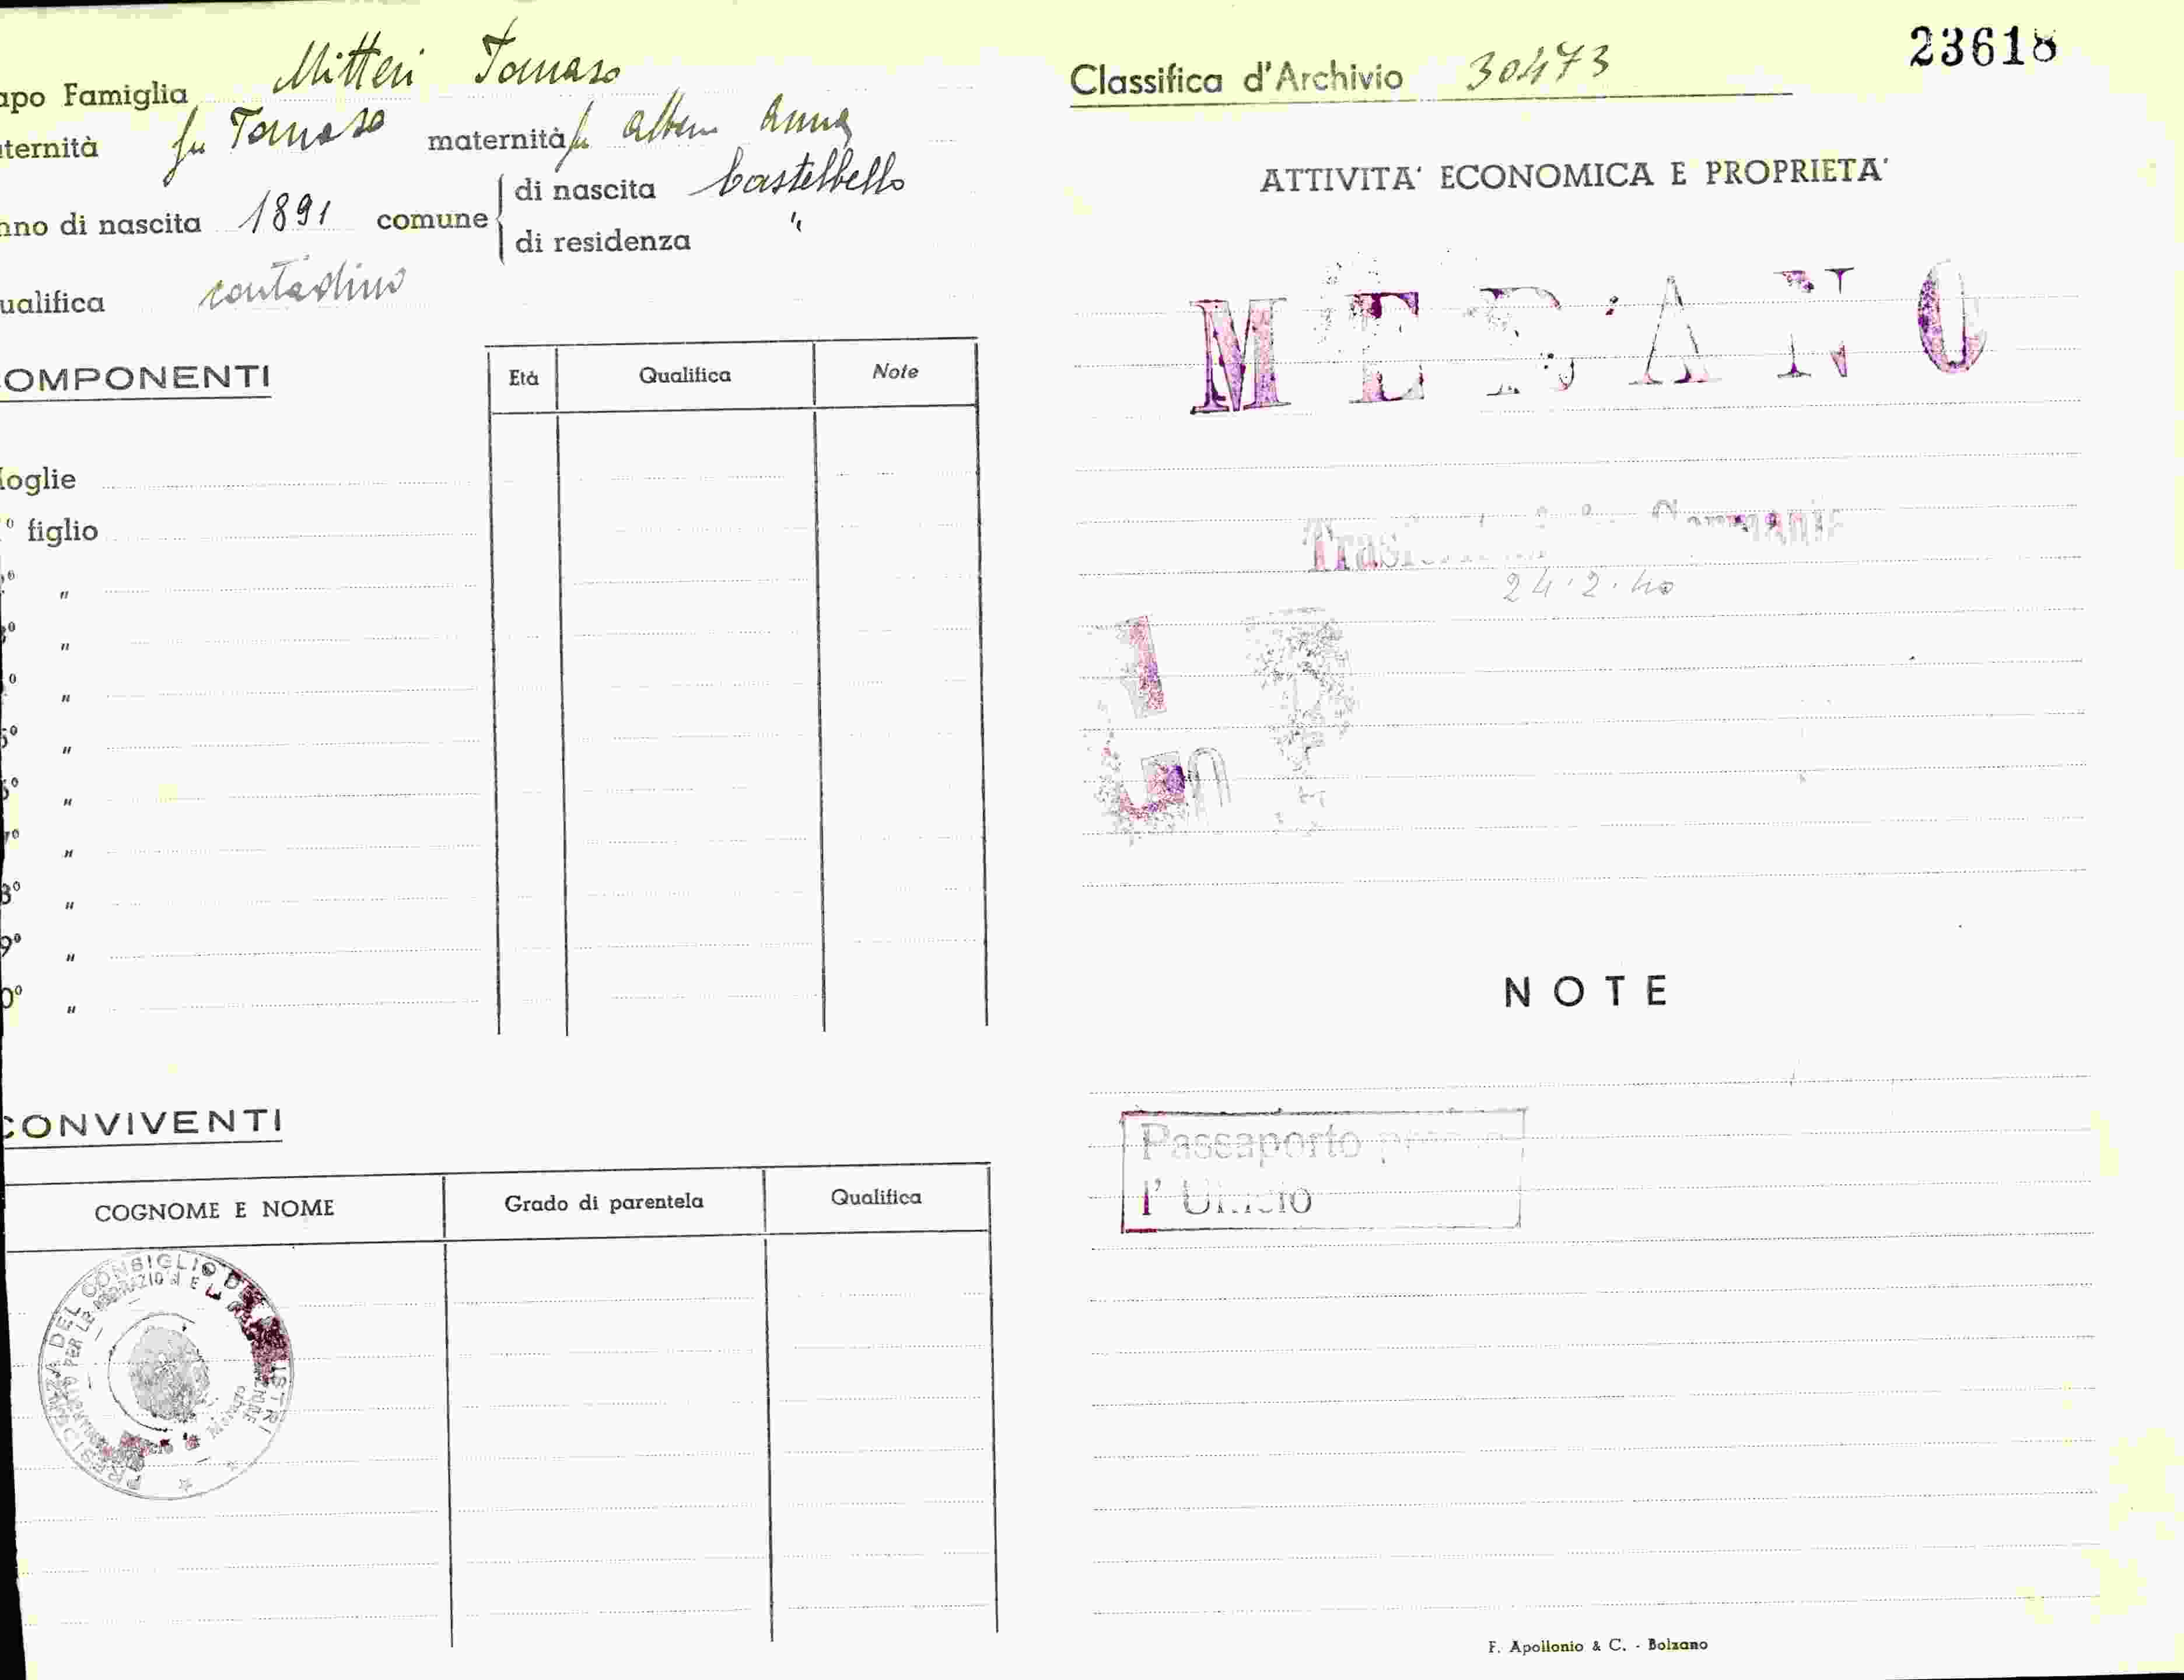 apo Famiglia Mitteri Tomaso
ternità fu Tomaso maternità fu Anna
nno di nascita 1891 comune di nascita Castelbello
di residenza "
ualifica contadino
OMPONENTI
Età Qualifica Note
oglie
° figlio
"
"
"
5° "
6° "
7° "
8° "
9° "
0° "
CONVIVENTI
COGNOME E NOME Grado di parentela Qualifica
PRESIDENZA DEL CONSIGLIO DEI MINISTRI
23618
Classifica d'Archivio 30473
ATTIVITA' ECONOMICA E PROPRIETA'
MERANO
24.2.40
NOTE
Passaporto
l' Ufficio
F. Apollonio & C. - Bolzano